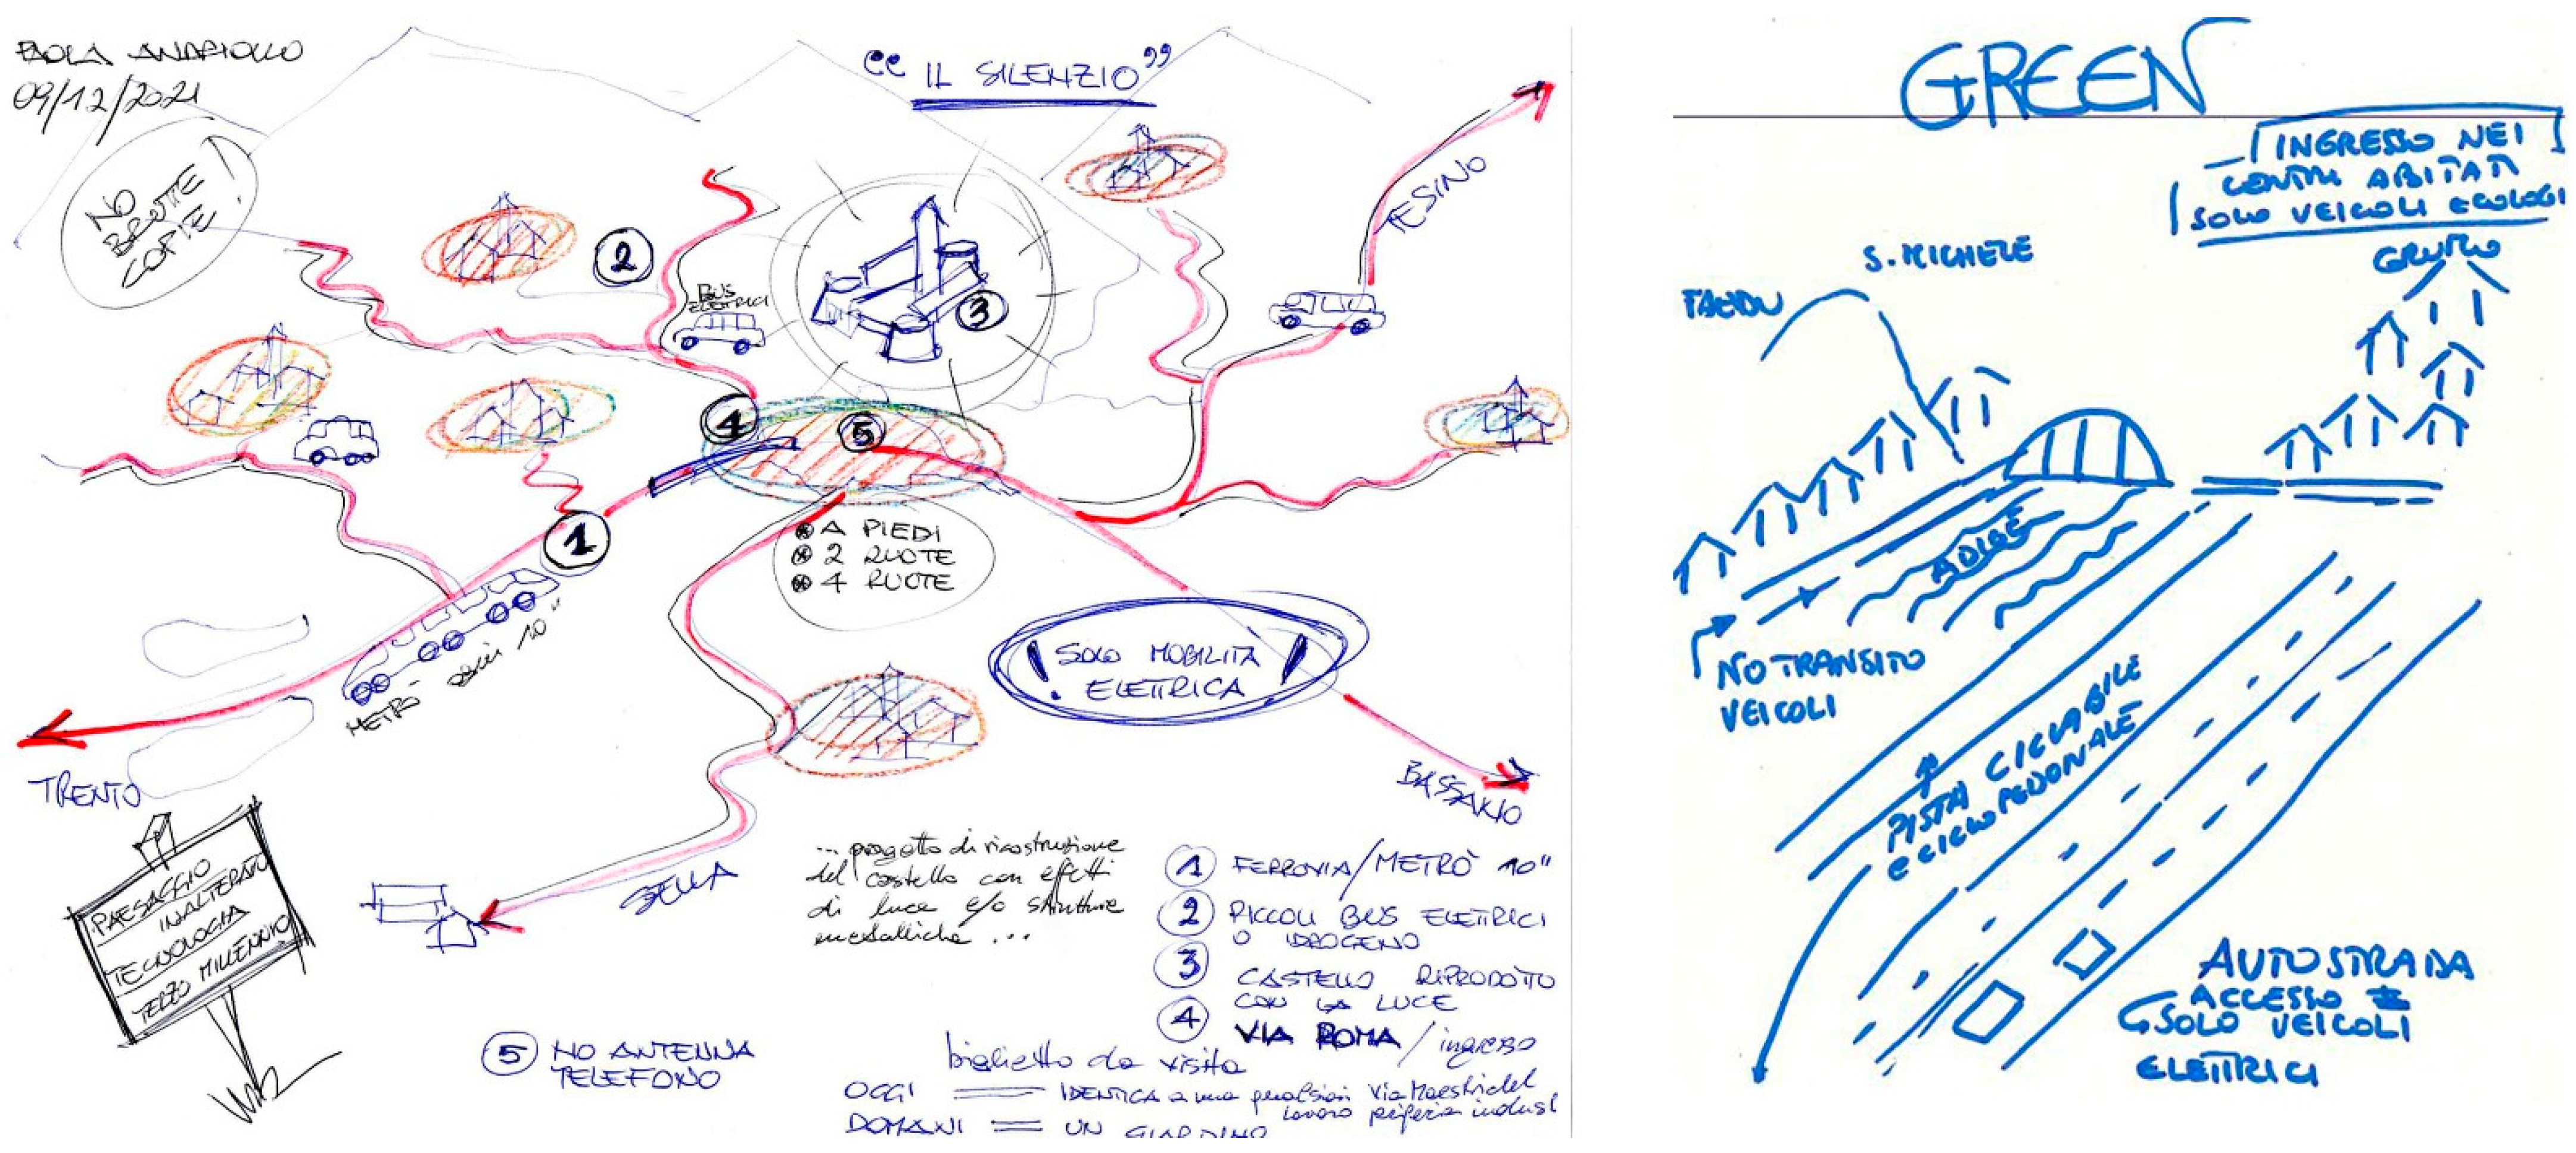 PAOLA ANDRIOLLO
09/12/2021
"IL SILENZIO"
NO
BRUTTE
COPIE!
2
BUS
ELETTRICI
3
TESINO
4
5
1
* A PIEDI
* 2 RUOTE
* 4 RUOTE
METRÒ OGNI 10"
! SOLO MOBILITÀ !
ELETTRICA
TRENTO
BASSANO
SELLA
PAESAGGIO
INALTERATO
TECNOLOGIA
TERZO MILLENNIO
... progetto di ricostruzione
del castello con effetti
di luce e/o strutture
metalliche ...
1 FERROVIA/METRÒ 10"
2 PICCOLI BUS ELETTRICI
O IDROGENO
3 CASTELLO RIPRODOTTO
CON LA LUCE
4 VIA ROMA / ingresso
biglietto da visita
5 NO ANTENNA
TELEFONO
OGGI = IDENTICA a una qualsiasi via Maestri del
lavoro periferia indust
DOMANI = UN GIARDINO
GREEN
INGRESSO NEI
CENTRI ABITATI
SOLO VEICOLI ECOLOGI
S. MICHELE
GRUMO
FAEDO
ADIGE
NO TRANSITO
VEICOLI
PISTA CICLABILE
e CICLOPEDONALE
AUTOSTRADA
ACCESSO
SOLO VEICOLI
ELETTRICI